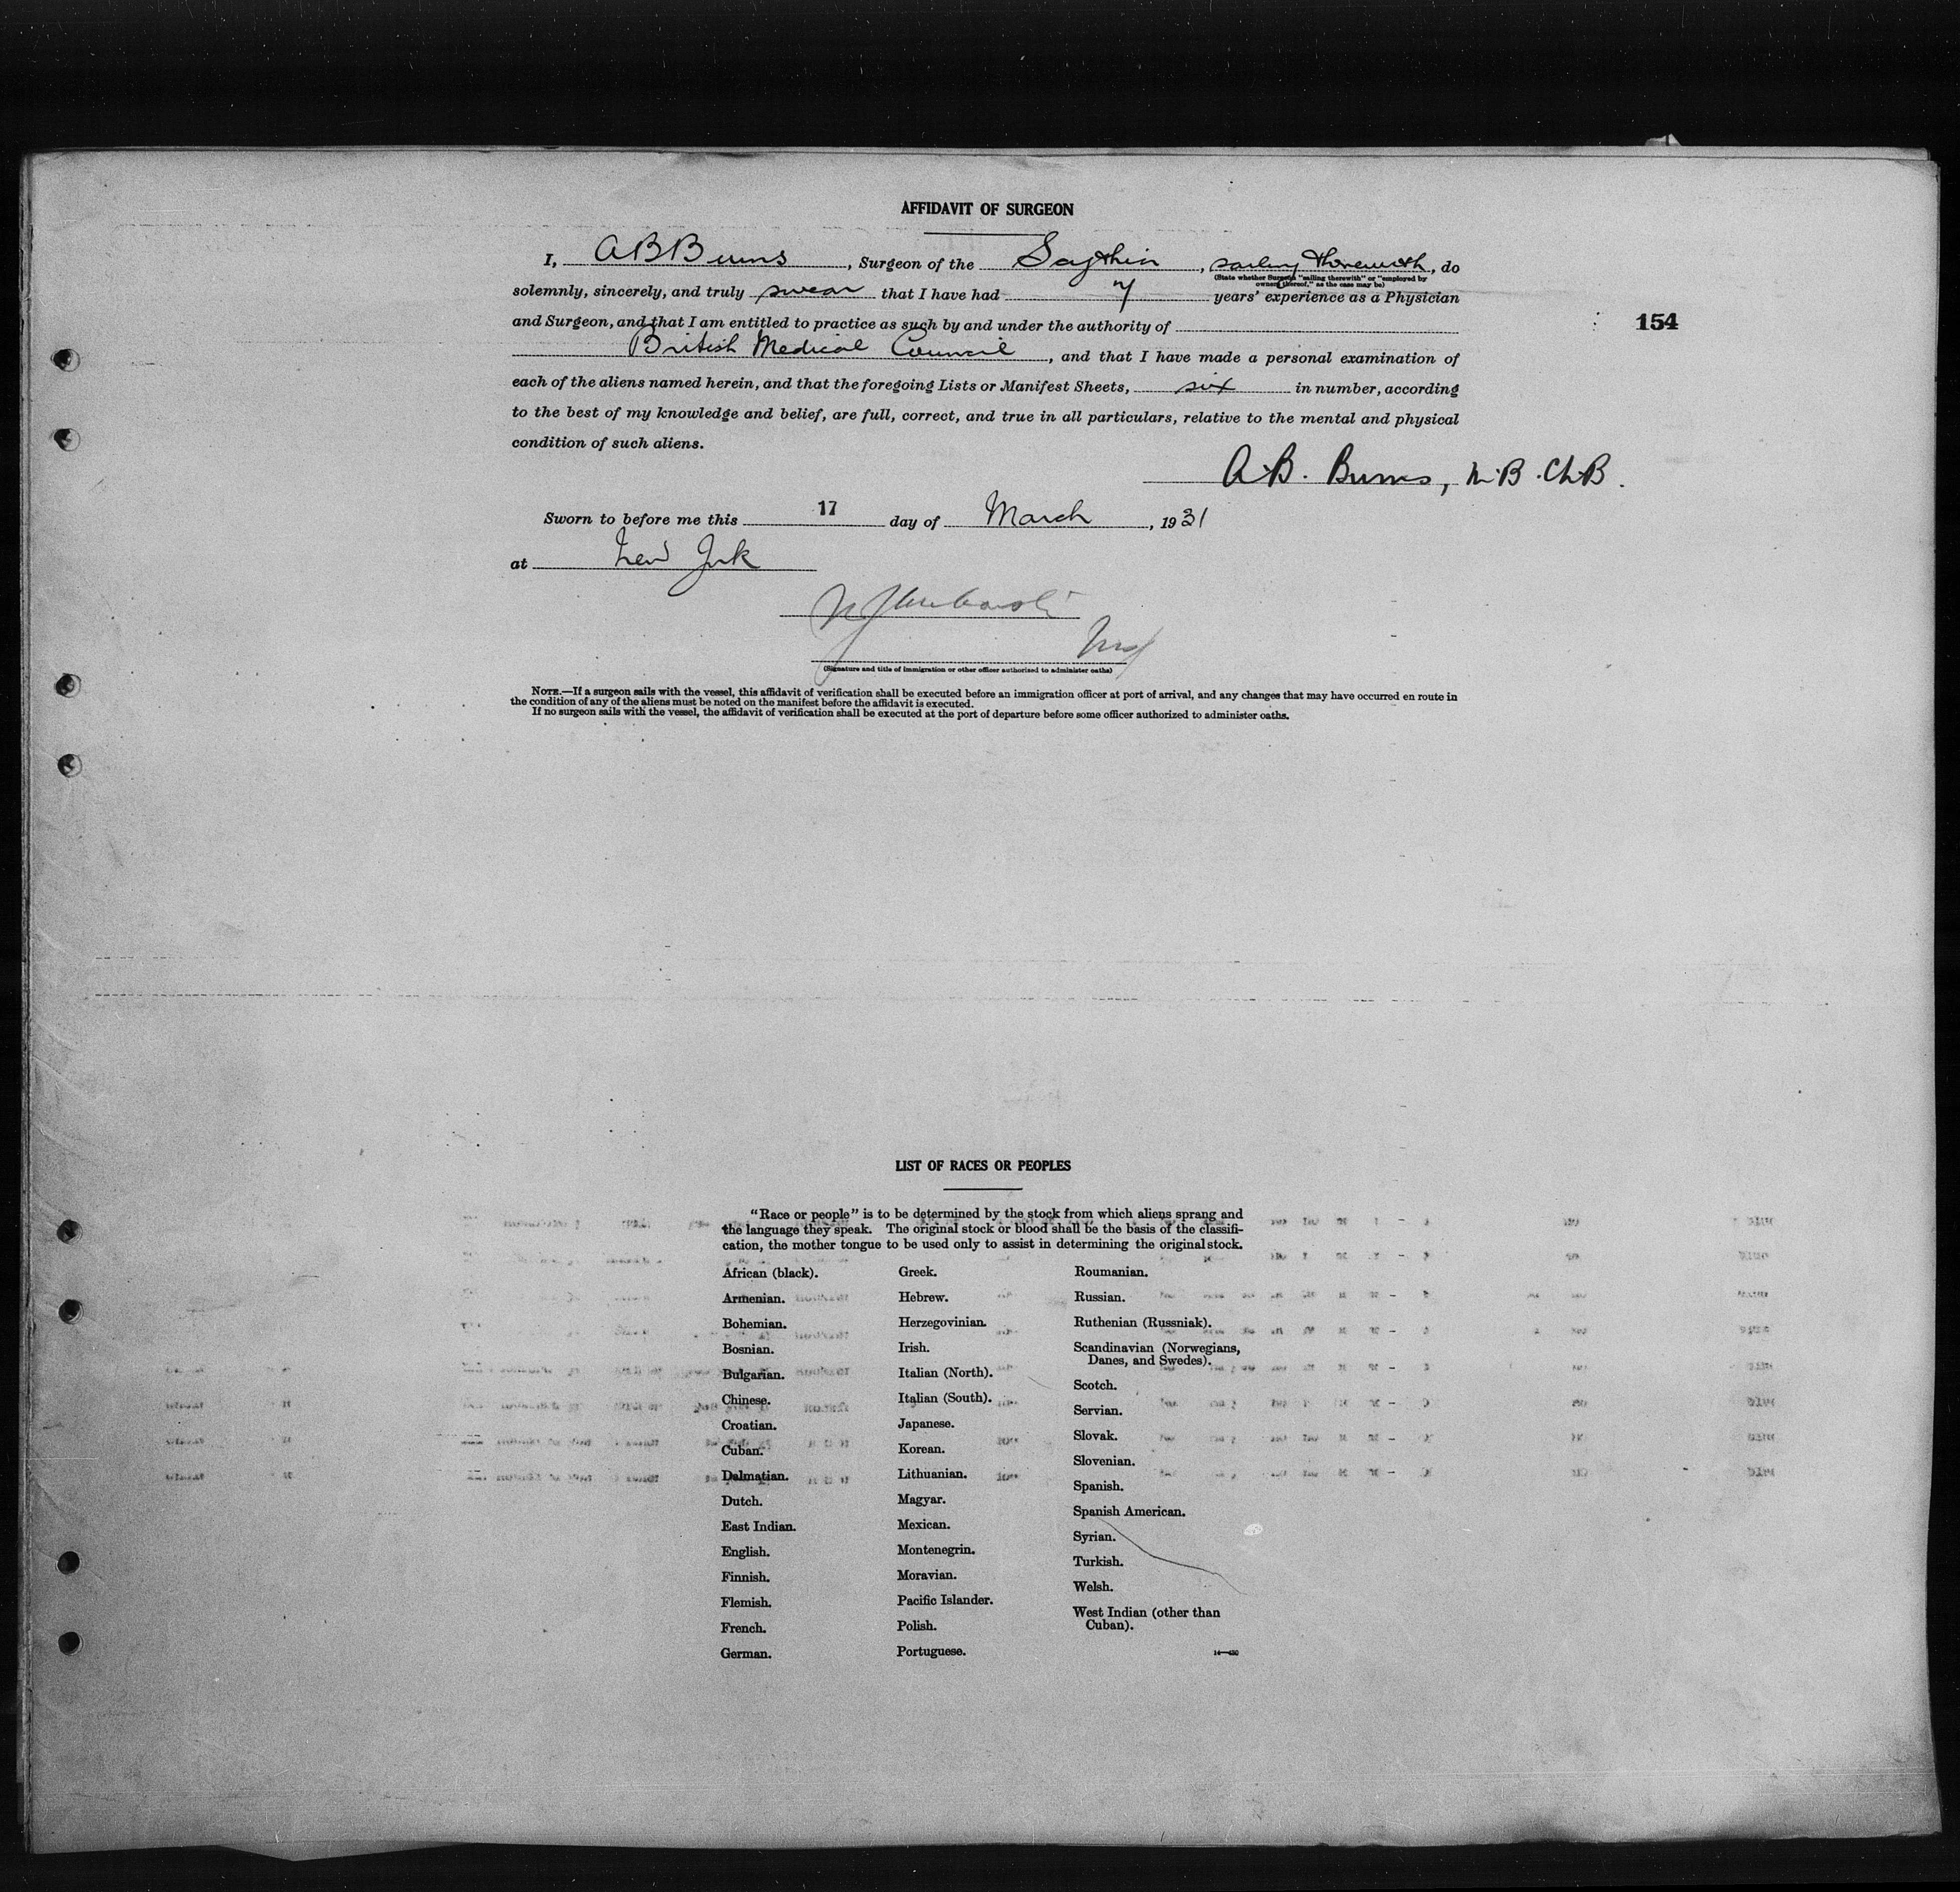 AFFIDAVIT OF SURGEON
I, A B Burns, Surgeon of the Scythia, sailing therewith, do
(State whether Surgeon "sailing therewith" or "employed by
owners thereof," as the case may be)
solemnly, sincerely, and truly swear that I have had 7 years' experience as a Physician
and Surgeon, and that I am entitled to practice as such by and under the authority of
154
British Medical Council, and that I have made a personal examination of
each of the aliens named herein, and that the foregoing Lists or Manifest Sheets, six in number, according
to the best of my knowledge and belief, are full, correct, and true in all particulars, relative to the mental and physical
condition of such aliens.
A.B. Burns, M.B. Ch.B.
Sworn to before me this 17 day of March, 1931
at New York
(Signature and title of immigration or other officer authorized to administer oaths)
NOTE.—If a surgeon sails with the vessel, this affidavit of verification shall be executed before an immigration officer at port of arrival, and any changes that may have occurred en route in
the condition of any of the aliens must be noted on the manifest before the affidavit is executed.
If no surgeon sails with the vessel, the affidavit of verification shall be executed at the port of departure before some officer authorized to administer oaths.
LIST OF RACES OR PEOPLES
"Race or people" is to be determined by the stock from which aliens sprang and
the language they speak. The original stock or blood shall be the basis of the classifi-
cation, the mother tongue to be used only to assist in determining the original stock.
African (black).
Armenian.
Bohemian.
Bosnian.
Bulgarian.
Chinese.
Croatian.
Cuban.
Dalmatian.
Dutch.
East Indian.
English.
Finnish.
Flemish.
French.
German.
Greek.
Hebrew.
Herzegovinian.
Irish.
Italian (North).
Italian (South).
Japanese.
Korean.
Lithuanian.
Magyar.
Mexican.
Montenegrin.
Moravian.
Pacific Islander.
Polish.
Portuguese.
Roumanian.
Russian.
Ruthenian (Russniak).
Scandinavian (Norwegians,
Danes, and Swedes).
Scotch.
Servian.
Slovak.
Slovenian.
Spanish.
Spanish American.
Syrian.
Turkish.
Welsh.
West Indian (other than
Cuban).